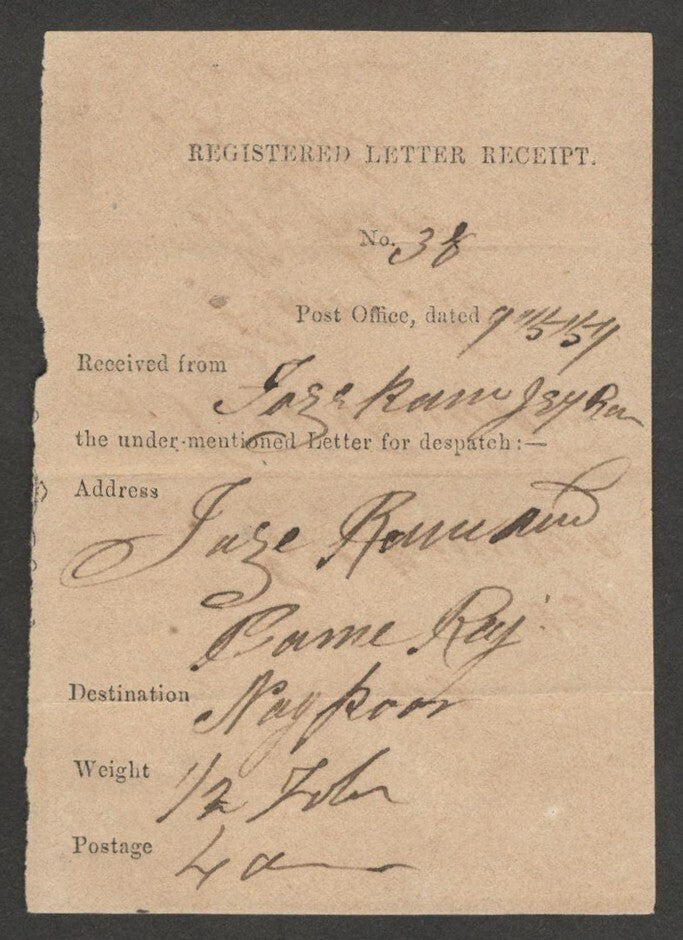 REGISTERED LETTER RECEIPT.
No. 38
Post Office, dated 9/5/59
Received from
the under-mentioned Letter for despatch:—
Address
Rame Raj
Destination Nagpoor
Weight 1/2 Tola
Postage 4 a